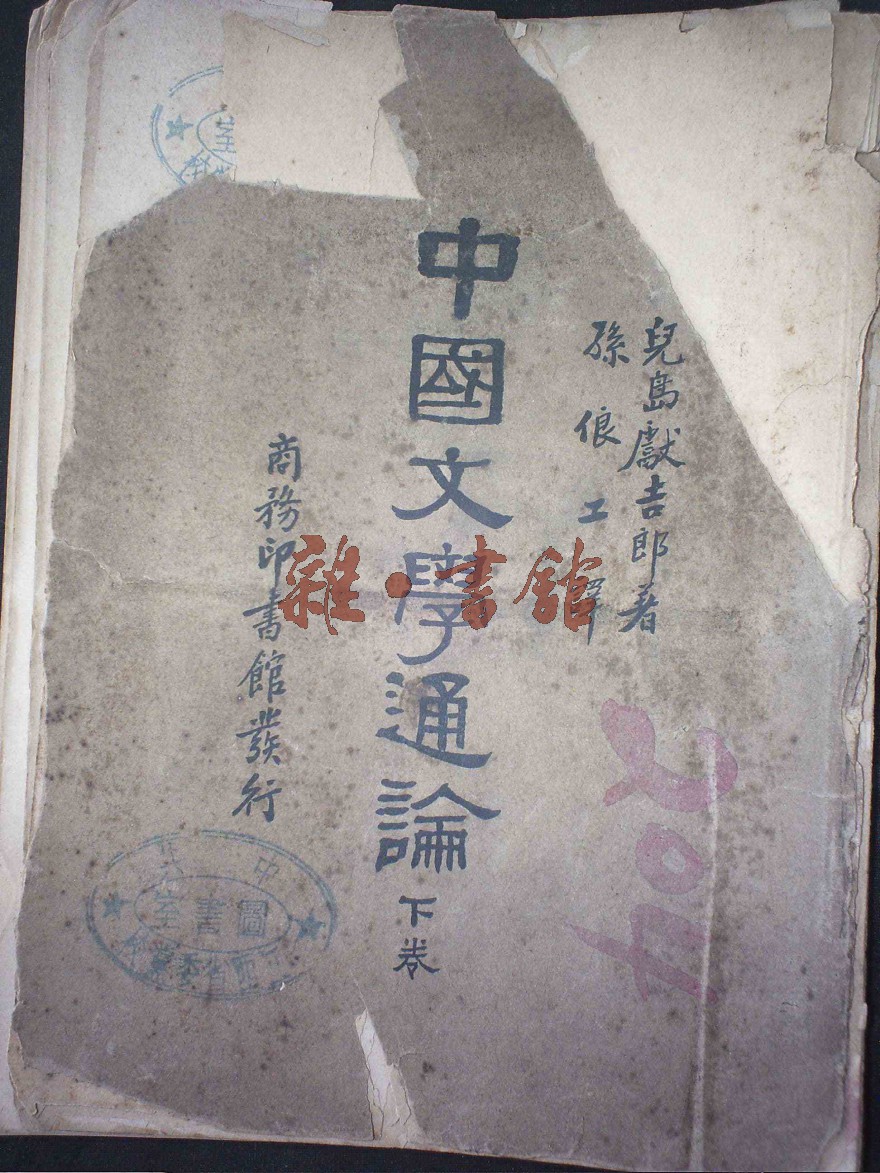 兒島獻吉郎著
孫俍工譯
中國文學通論 下卷
商務印書館發行
雜·書館
圖書室